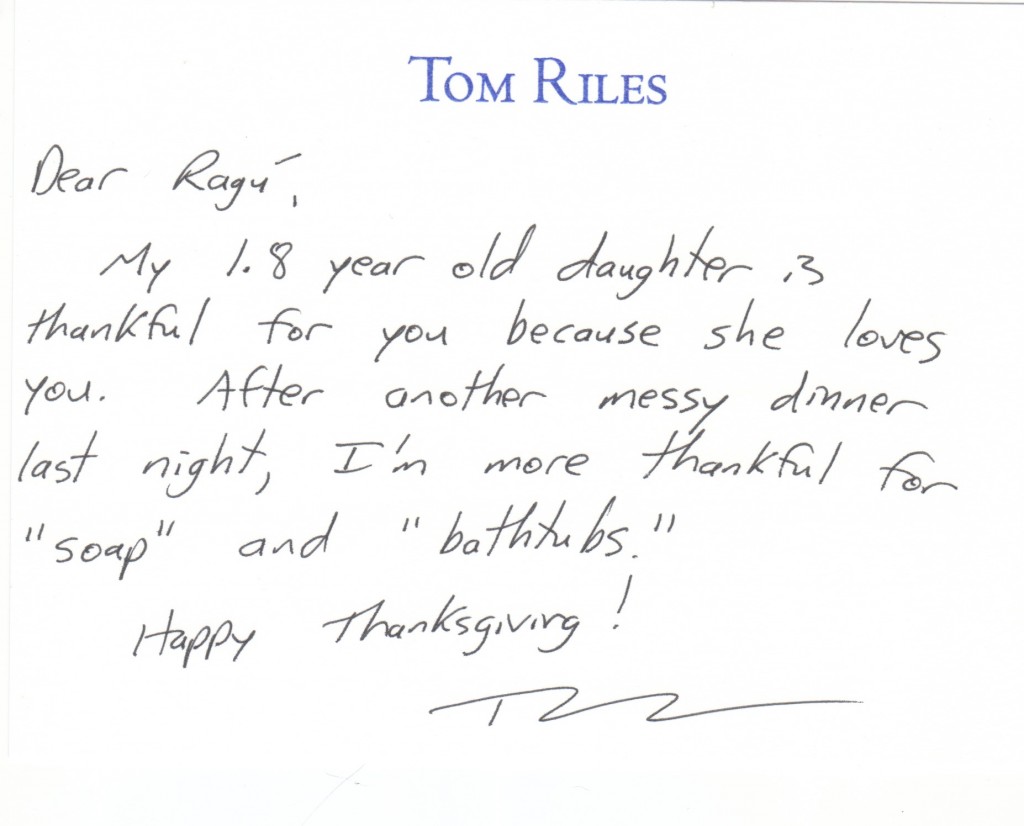 TOM RILES
Dear Ragú,
My 1.8 year old daughter is
thankful for you because she loves
you. After another messy dinner
last night, I'm more thankful for
"soap" and "bathtubs."
Happy Thanksgiving!